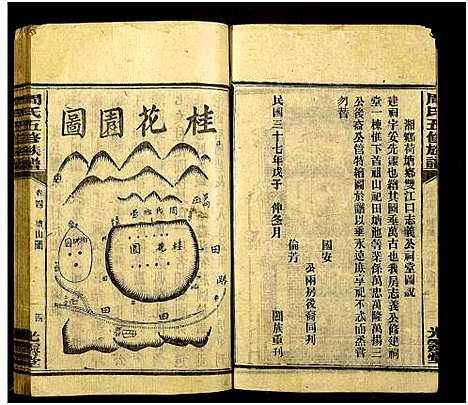 周氏五修族譜
湘鄉荷塘鄉雙江口志義公祠堂圖說
建祠宇安先靈也繪其圖垂萬古也我房志義公修建祠
堂一棟樅下首祖山祀田塘池等業係萬忠萬隆萬揚三
公後裔公管特繪圖於譜以垂永遠庶享祀不忒而烝嘗
勿替
國安
倫芳
公兩房後裔同刊
民國三十七年戊子 仲冬月
闔族重刊
光霽堂
桂花園圖
桂花園
田
田
路
周氏五修族譜
卷四 墳山圖
光霽堂